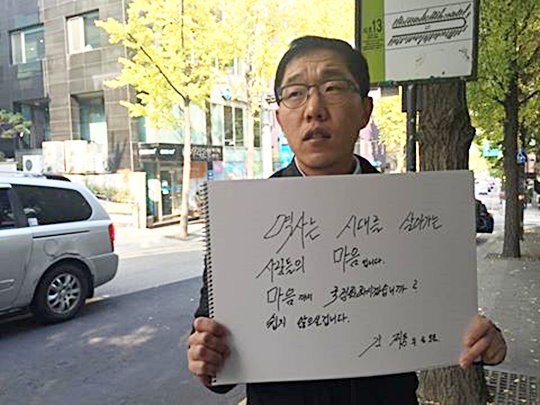 13
역사는 시대를 살아가는
사람들의 마음입니다.
마음까지 국정화하시겠습니까?
쉽지 않으실 겁니다.
김제동